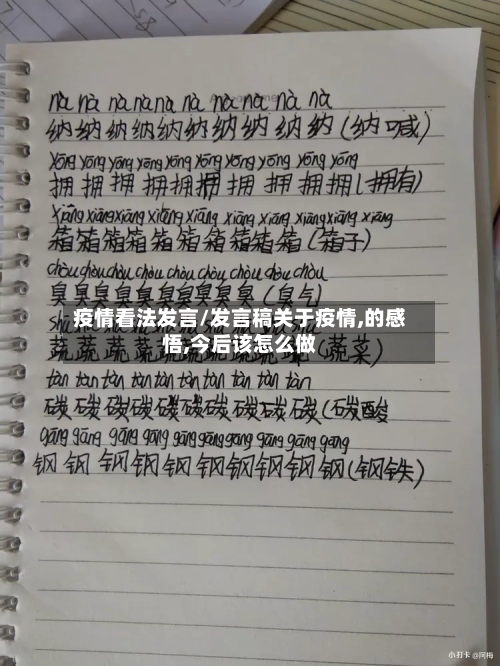 nà nà nà nà nà nà nà nà nà nà
纳纳纳纳纳纳纳纳纳纳(纳喊)
yōng yōng yōng yōng yōng yōng yōng yōng yōng yōng
拥拥拥拥拥拥拥拥拥拥(拥有)
xiāng xiāng xiāng xiāng xiāng xiāng xiāng xiāng xiāng xiāng
箱箱箱箱箱箱箱箱箱箱(箱子)
chòu chòu chòu chòu chòu chòu chòu chòu chòu chòu
臭臭臭臭臭臭臭臭臭臭(臭气)
疫情看法发言/发言稿关于疫情,的感
悟,今后该怎么做
蔬蔬蔬(蔬菜)
tàn tàn tàn tàn tàn tàn tàn tàn tàn tàn
碳碳碳碳碳碳碳碳碳碳(碳酸
gāng gāng gāng gāng gāng gāng gāng gāng gāng gāng
钢钢钢钢钢钢钢钢钢钢(钢铁)
小打卡 @阿梅